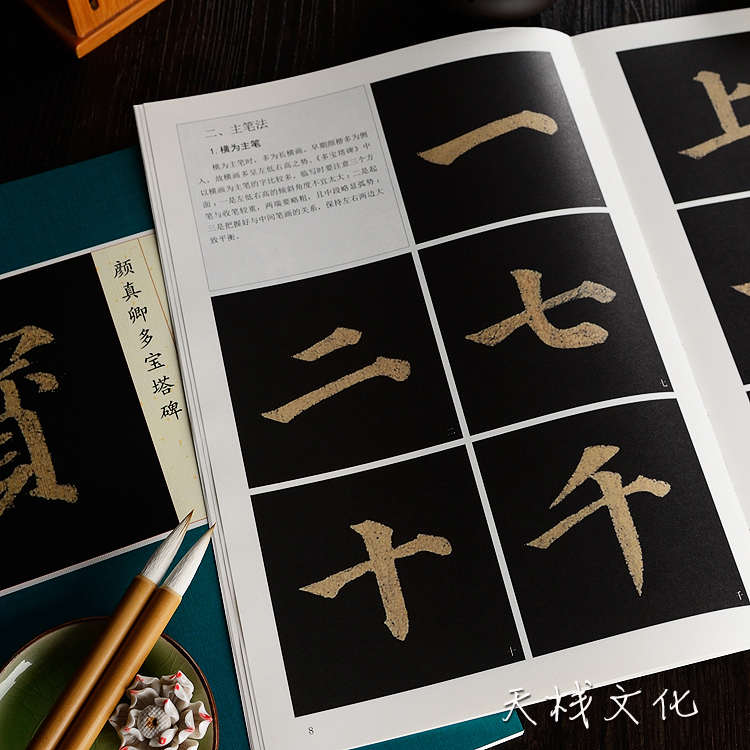 二、主笔法
1.横为主笔
横为主笔时，多为长横画。早期颜楷多为侧
入，故横画多呈左低右高之势。《多宝塔碑》中
以横画为主笔的字比较多，临写时要注意三个方
面：一是左低右高的倾斜角度不宜太大；二是起
笔与收笔较重，两端要略粗，且中段略显弧势；
三是把握好与中间笔画的关系，保持左右两边大
致平衡。
一
上
二
二
七
七
十
十
千
千
8
颜真卿多宝塔碑
天栈文化